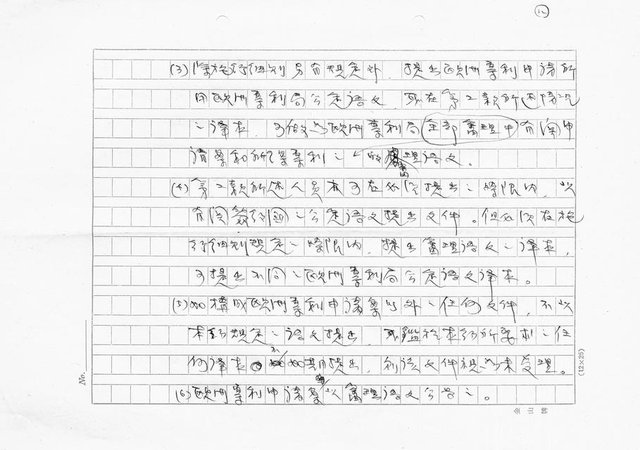 12
(3) 除施行細則另有規定外，提出歐洲專利申請所
用歐洲專利局公定語文，或在第二款所述情況
之譯本，可作為歐洲專利局全部審理中有關申
請專利所獲專利之審理語文。
(4) 第二款所述人員亦可在必須提出之時限內，以
有關締約國之公定語文提出文件。但必須在施
行細則規定之時限內，提出審理語文之譯本，
可提出不同之歐洲專利局公定語文譯本。
(5) 構成歐洲專利申請案以外之任何文件，不以
本約規定之語文提出，或經本約所要求之任
何譯本不如期提出，則該文件視為未受理。
(6) 歐洲專利申請案以審理語文公告之。
No.
(12×25)